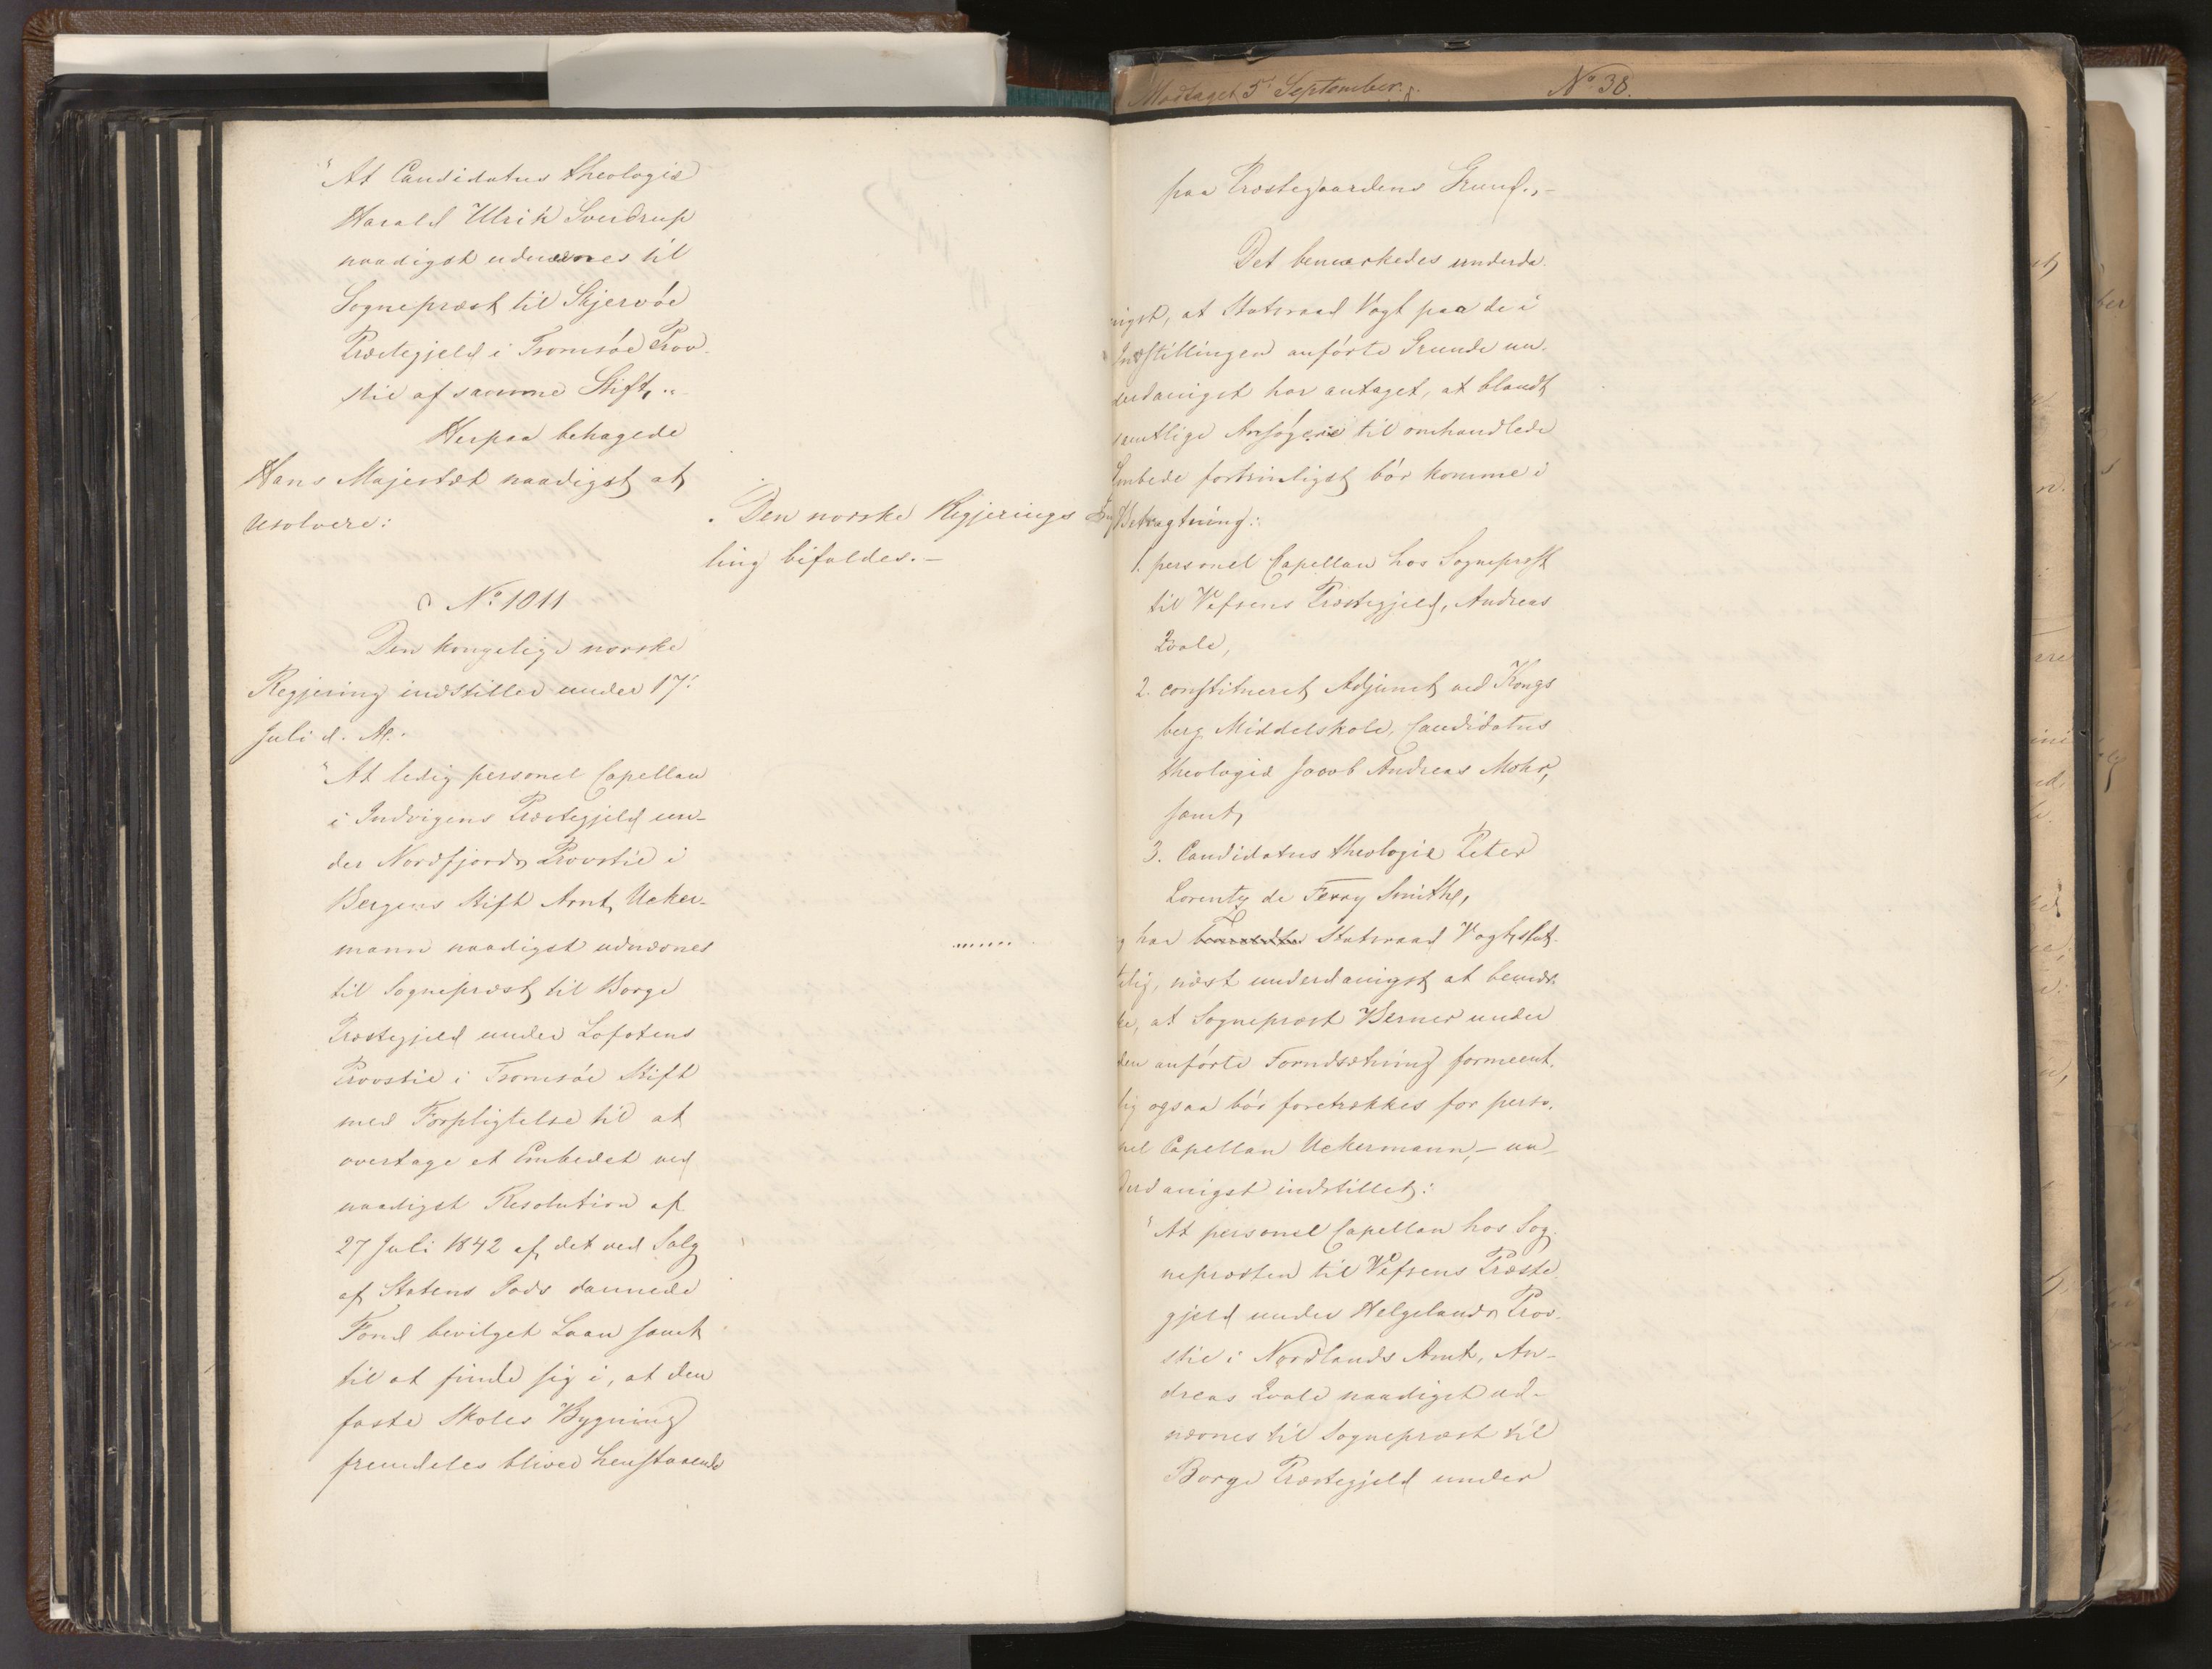 "At Candidatus theologiæ
Harald Ulrik Sverdrup
naadigst udnævnes til
Sognepræst til Skjervöe
Præstegjeld i Tromsöe Prov-
stie af samme Stift."
Herpaa behagede
Hans Majestæt naadigst at
resolvere:
Den norske Regjerings
ling bifaldes.-
No. 1011
Den kongelige norske
Regjering indstiller under 17.
Juli d. A.:
"At ledig personel Capellan
i Indvigens Præstegjeld un-
der Nordfjords Provstie i
Bergens Stift Arnt Ucker-
mann naadigst udnævnes
.......
til Sognepræst til Borge
Præstegjeld under Lofotens
Provstie i Tromsöe Stift
med Forpligtelse til at
overtage et Embedet ved
naadigst Resolution af
27 Juli 1842 af det ved Salg
af Statens Gods dannede
Fond bevilget Laan samt
til at finde sig i, at den
faste Skoles Bygning
fremdeles bliver henstaaende
Modtaget 5t September. No. 38.
paa Præstegaardens Grund.,-
Det bemærkedes underda-
nigst, at Statsraad Vogt paa de i
Indstillingen anförte Grunde un-
derdanigst har antaget, at blandt
samtlige Ansögere til omhandlede
Embede fortrinligst bör komme i
Betragtning:
1. personel Capellan hos Sognepræst
til Vefsens Præstegjeld, Andreas
Qvale,
2. constitueret Adjunct ved Kongs
berg Middelskole, Candidatus
theologiæ Jacob Andreas Mohr,
samt
3. Candidatus theologiæ Peter
Lorentz de Ferry Smith,
har Statsraad Vogt, slut-
telig, næst underdanigst at bemær-
ke, at Sognepræst Berner under
den anförte Forudsætning formeent-
lig ogsaa bör foretrækkes for perso-
nel Capellan Uckermann,- un-
derdanigst indstillet:
"At personel Capellan hos Sog-
nepræsten til Vefsens Præste
gjeld under Helgelands Prov-
stie i Nordlands Amt, An-
dreas Qvale naadigst ud-
nævnes til Sognepræst til
Borge Præstegjeld under